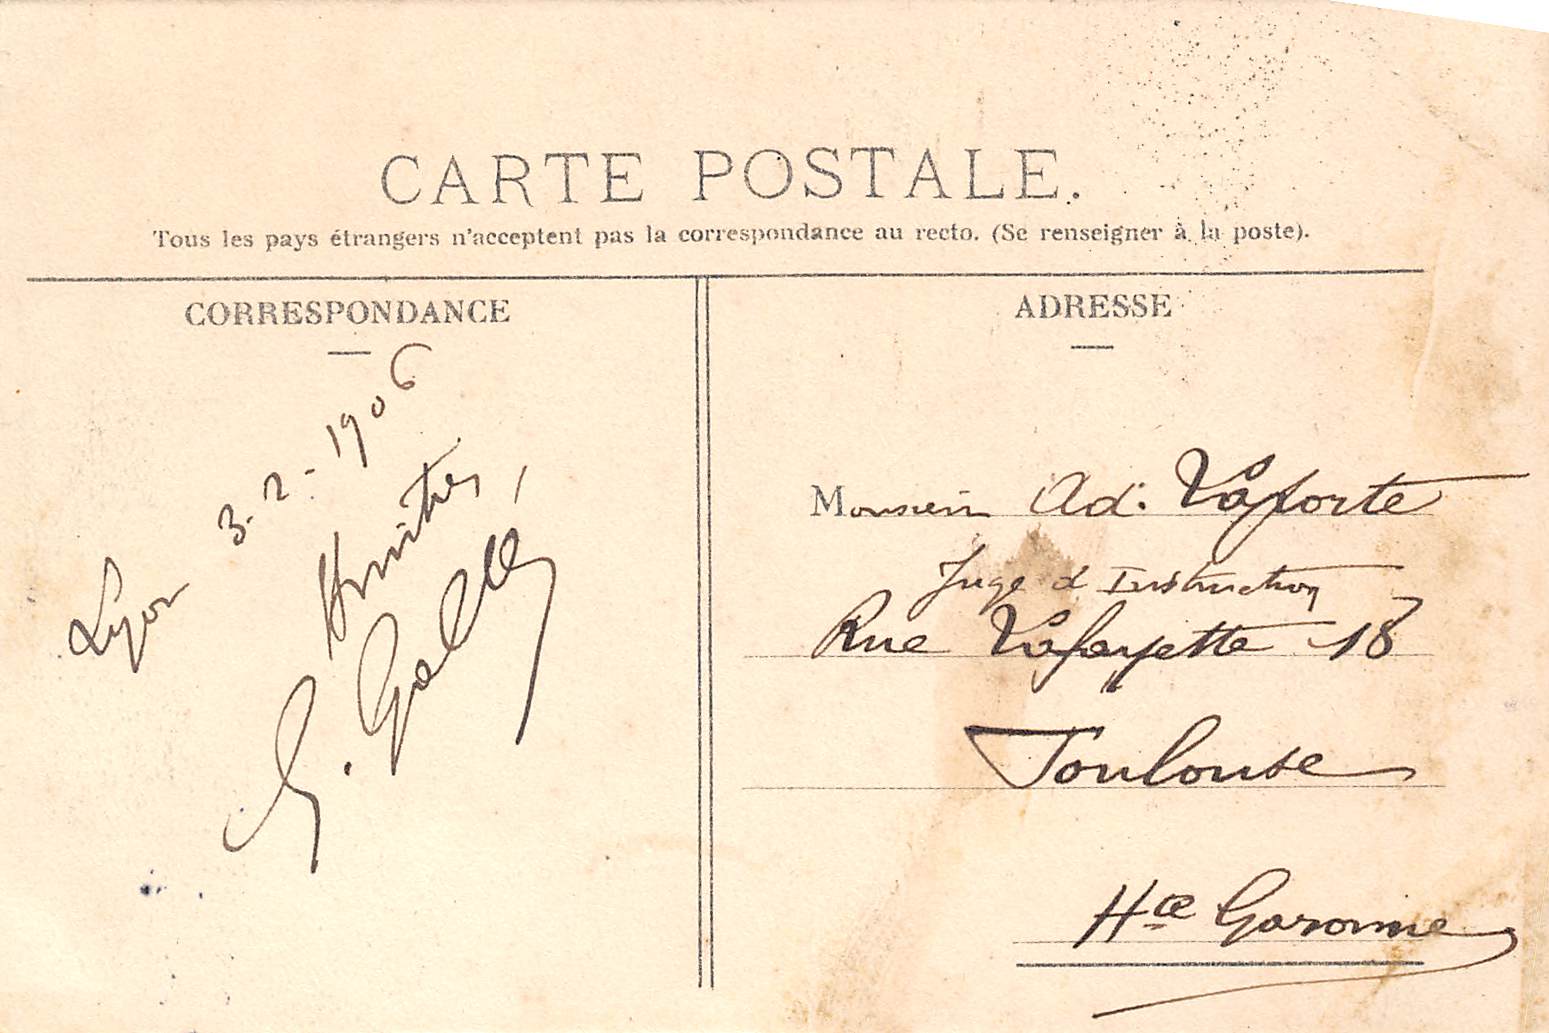 CARTE POSTALE.
Tous les pays étrangers n'acceptent pas la correspondance au recto. (Se renseigner à la poste).
CORRESPONDANCE
Lyon 3-2-1906
G.
ADRESSE
Monsieur Ad. Laforte
Juge d Instruction
Rue Lafayette 18
Toulouse
Hte Garonne